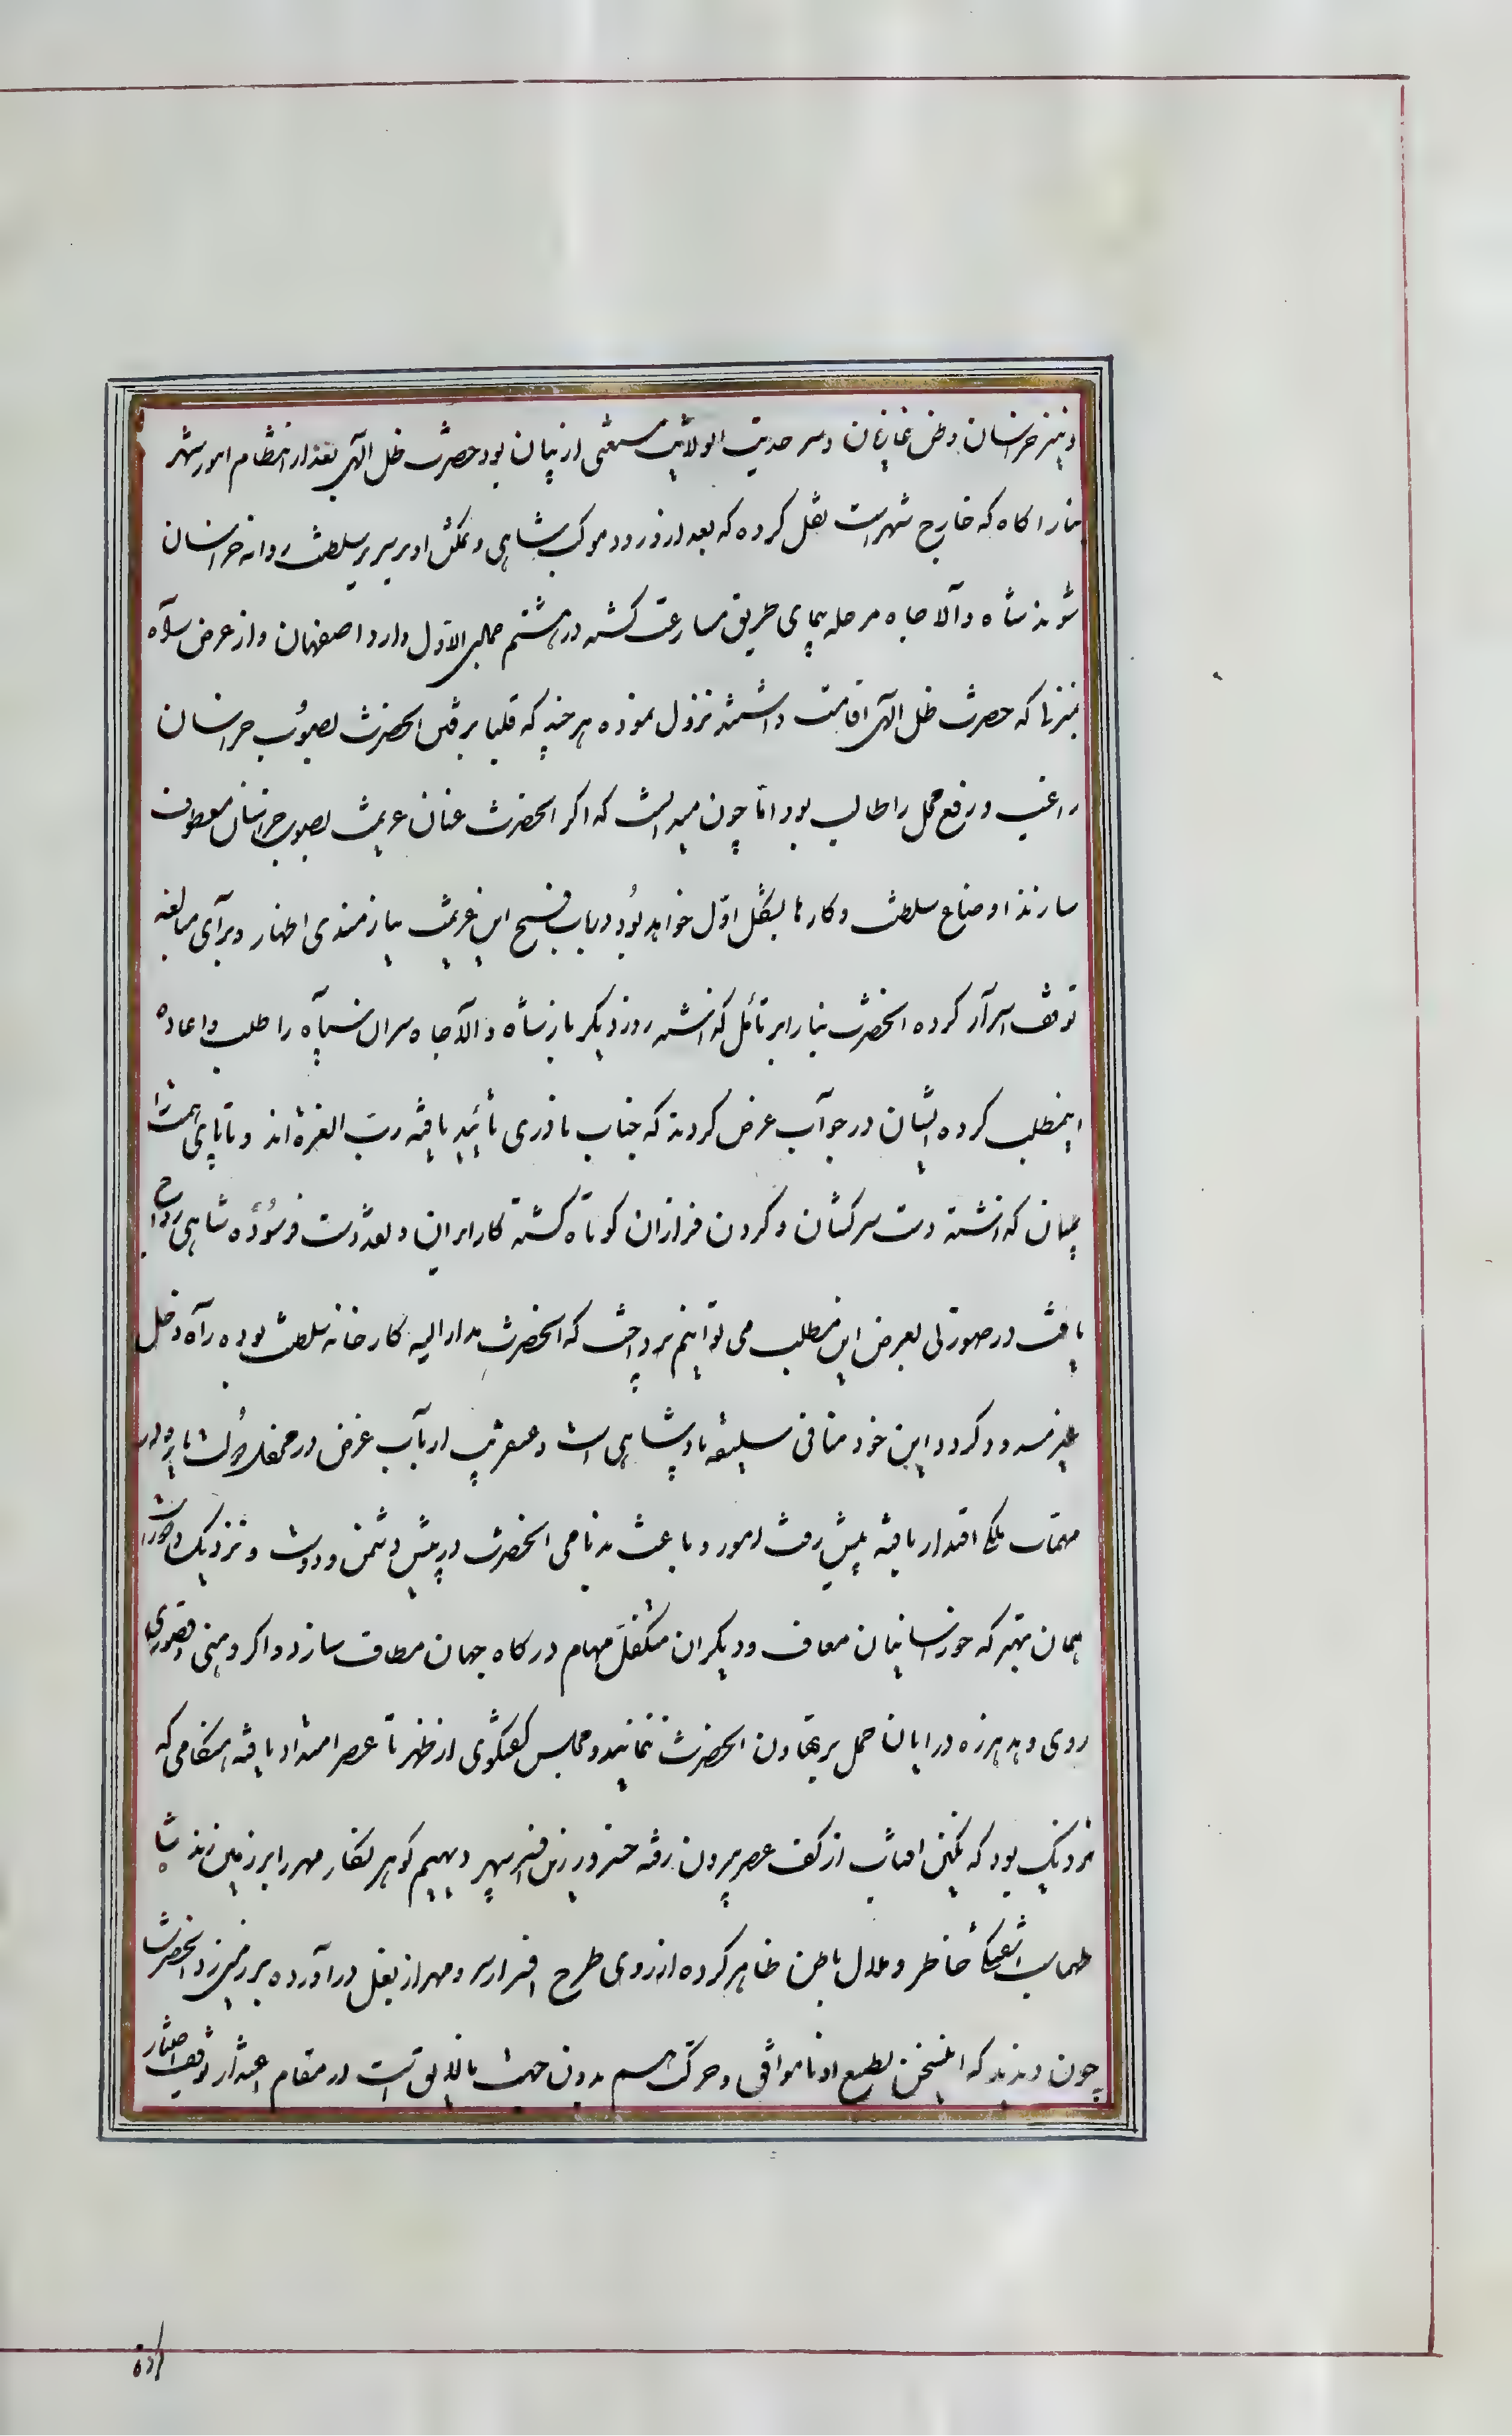 و نیز خراسان وطن غازیان و سر حدیت الولایت مستغنی از بیان بود حضرت ظل الهی بعد از انتظام امور شهر
بنارا کاه که خارج شهر است نقل کرده که بعد از ورود موکب شاهی و تمکن او بر سریر سلطنت روانه خراسان
شوند شاه والا جاه مرحله پیمای طریق مسارعت کشته در هشتم جمادی الاول وارد اصفهان و از عرض راه
بمنزلی که حضرت ظل الهی اقامت داشتند نزول نموده هر چند که قلبا برفتن انحضرت بصوب خراسان
راغب و رفع محل را طالب بود اما چون میدانست که اکر انحضرت عنان عزیمت بصوب خراسان معطوف
سازند اوضاع سلطنت و کارها بشکل اول خواهد بود در باب فسخ این عزیمت نیازمندی اظهار و برای مبالغه
توقف اسرار کرده انحضرت بنا را بر تأمل کذاشته روز دیکر باز شاه والا جاه سران سپاه را طلب و اعاده
اینمطلب کرده ایشان در جواب عرض کردند که جناب نادری تأیید یافته رب العزه اند و تا پای همت را
بمیان کذاشته دست سرکشان و کردن فرازان کوتاه کشته کار ایران و بعد دست فرسوده شاهی رواج
یافت در صورتی بعرض این مطلب می توانیم پرداخت که انحضرت مدار الیه کارخانه سلطنت بوده راه دخل
غیر مسدود کردد و این خود منافی سلیقه پادشاهی است و عنقریب ارباب غرض در محفل دولت باریاب و در
مهمات ملکی اقتدار یافته پیش رفت امور و باعث بدنامی انحضرت در پیش دشمن و دوست و نزدیک و دور است
همان بهتر که خورسانیان معاف و دیکران متکفل مهام درکاه جهان مطاف سازد و اکر وهنی و قصوری
روی دهد هرزه درایان حمل بر تهاون انحضرت ننمایند و مجلس کفتکوی از ظهر تا عصر امتداد یافته هنکامی که
نزدیک بود که نکین افتاب از کف عصر بیرون رفته خسرو زرین افسر سپهر دیهیم کوهر نکار مهر را بر زمین زند شاه
طهماسب اشفتکی خاطر و ملال باطن ظاهر کرده از روی طرح افسر از سر و مهر از بغل در آورده بر زمین زد انحضرت
چون دیدند که اینسخن بطبع او ناموافق و حرکت هم بدون جهت نالایق است در مقام اعتذار توقف اختیار